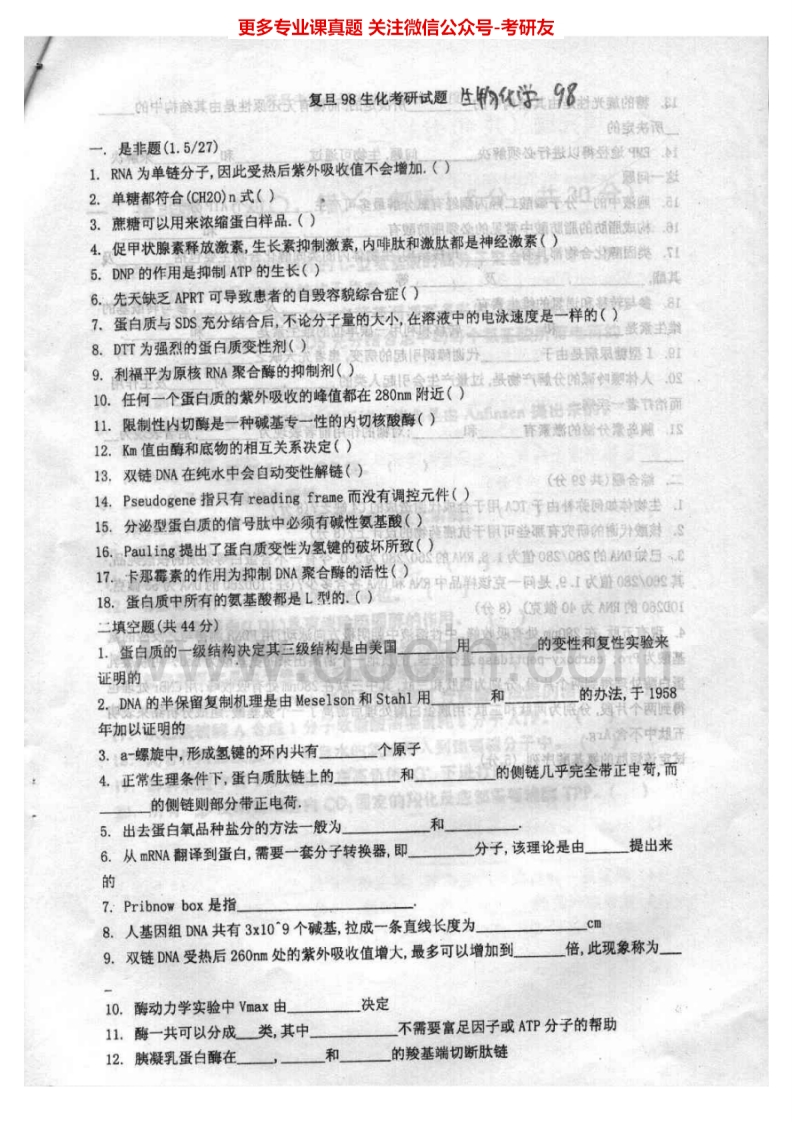 更多专业课真题 关注微信公众号-考研友
复旦 98 生化考研试题 生物化学 98
一. 是非题(1.5/27)
1. RNA 为单链分子,因此受热后紫外吸收值不会增加.( )
2. 单糖都符合(CH2O)n 式( )
3. 蔗糖可以用来浓缩蛋白样品.( )
4. 促甲状腺素释放激素,生长素抑制激素,内啡肽和激肽都是神经激素( )
5. DNP 的作用是抑制 ATP 的生长( )
6. 先天缺乏 APRT 可导致患者的自毁容貌综合症( )
7. 蛋白质与 SDS 充分结合后,不论分子量的大小,在溶液中的电泳速度是一样的( )
8. DTT 为强烈的蛋白质变性剂( )
9. 利福平为原核 RNA 聚合酶的抑制剂( )
10. 任何一个蛋白质的紫外吸收的峰值都在 280nm 附近( )
11. 限制性内切酶是一种碱基专一性的内切核酸酶( )
12. Km 值由酶和底物的相互关系决定( )
13. 双链 DNA 在纯水中会自动变性解链( )
14. Pseudogene 指只有 reading frame 而没有调控元件( )
15. 分泌型蛋白质的信号肽中必须有碱性氨基酸( )
16. Pauling 提出了蛋白质变性为氢键的破坏所致( )
17. 卡那霉素的作用为抑制 DNA 聚合酶的活性( )
18. 蛋白质中所有的氨基酸都是 L 型的.( )
二填空题(共 44 分)
1. 蛋白质的一级结构决定其三级结构是由美国______用______的变性和复性实验来
证明的
2. DNA 的半保留复制机理是由 Meselson 和 Stahl 用______和______的办法,于 1958
年加以证明的
3. a-螺旋中,形成氢键的环内共有______个原子
4. 正常生理条件下,蛋白质肽链上的______和______的侧链几乎完全带正电荷,而
______的侧链则部分带正电荷.
5. 出去蛋白氧品种盐分的方法一般为______和______.
6. 从 mRNA 翻译到蛋白,需要一套分子转换器,即______分子,该理论是由______提出来
的
7. Pribnow box 是指______.
8. 人基因组 DNA 共有 3x10^9 个碱基,拉成一条直线长度为______cm
9. 双链 DNA 受热后 260nm 处的紫外吸收值增大,最多可以增加到______倍,此现象称为___
_
10. 酶动力学实验中 Vmax 由______决定
11. 酶一共可以分成___类,其中______不需要富足因子或 ATP 分子的帮助
12. 胰凝乳蛋白酶在____,_____和______的羧基端切断肽链